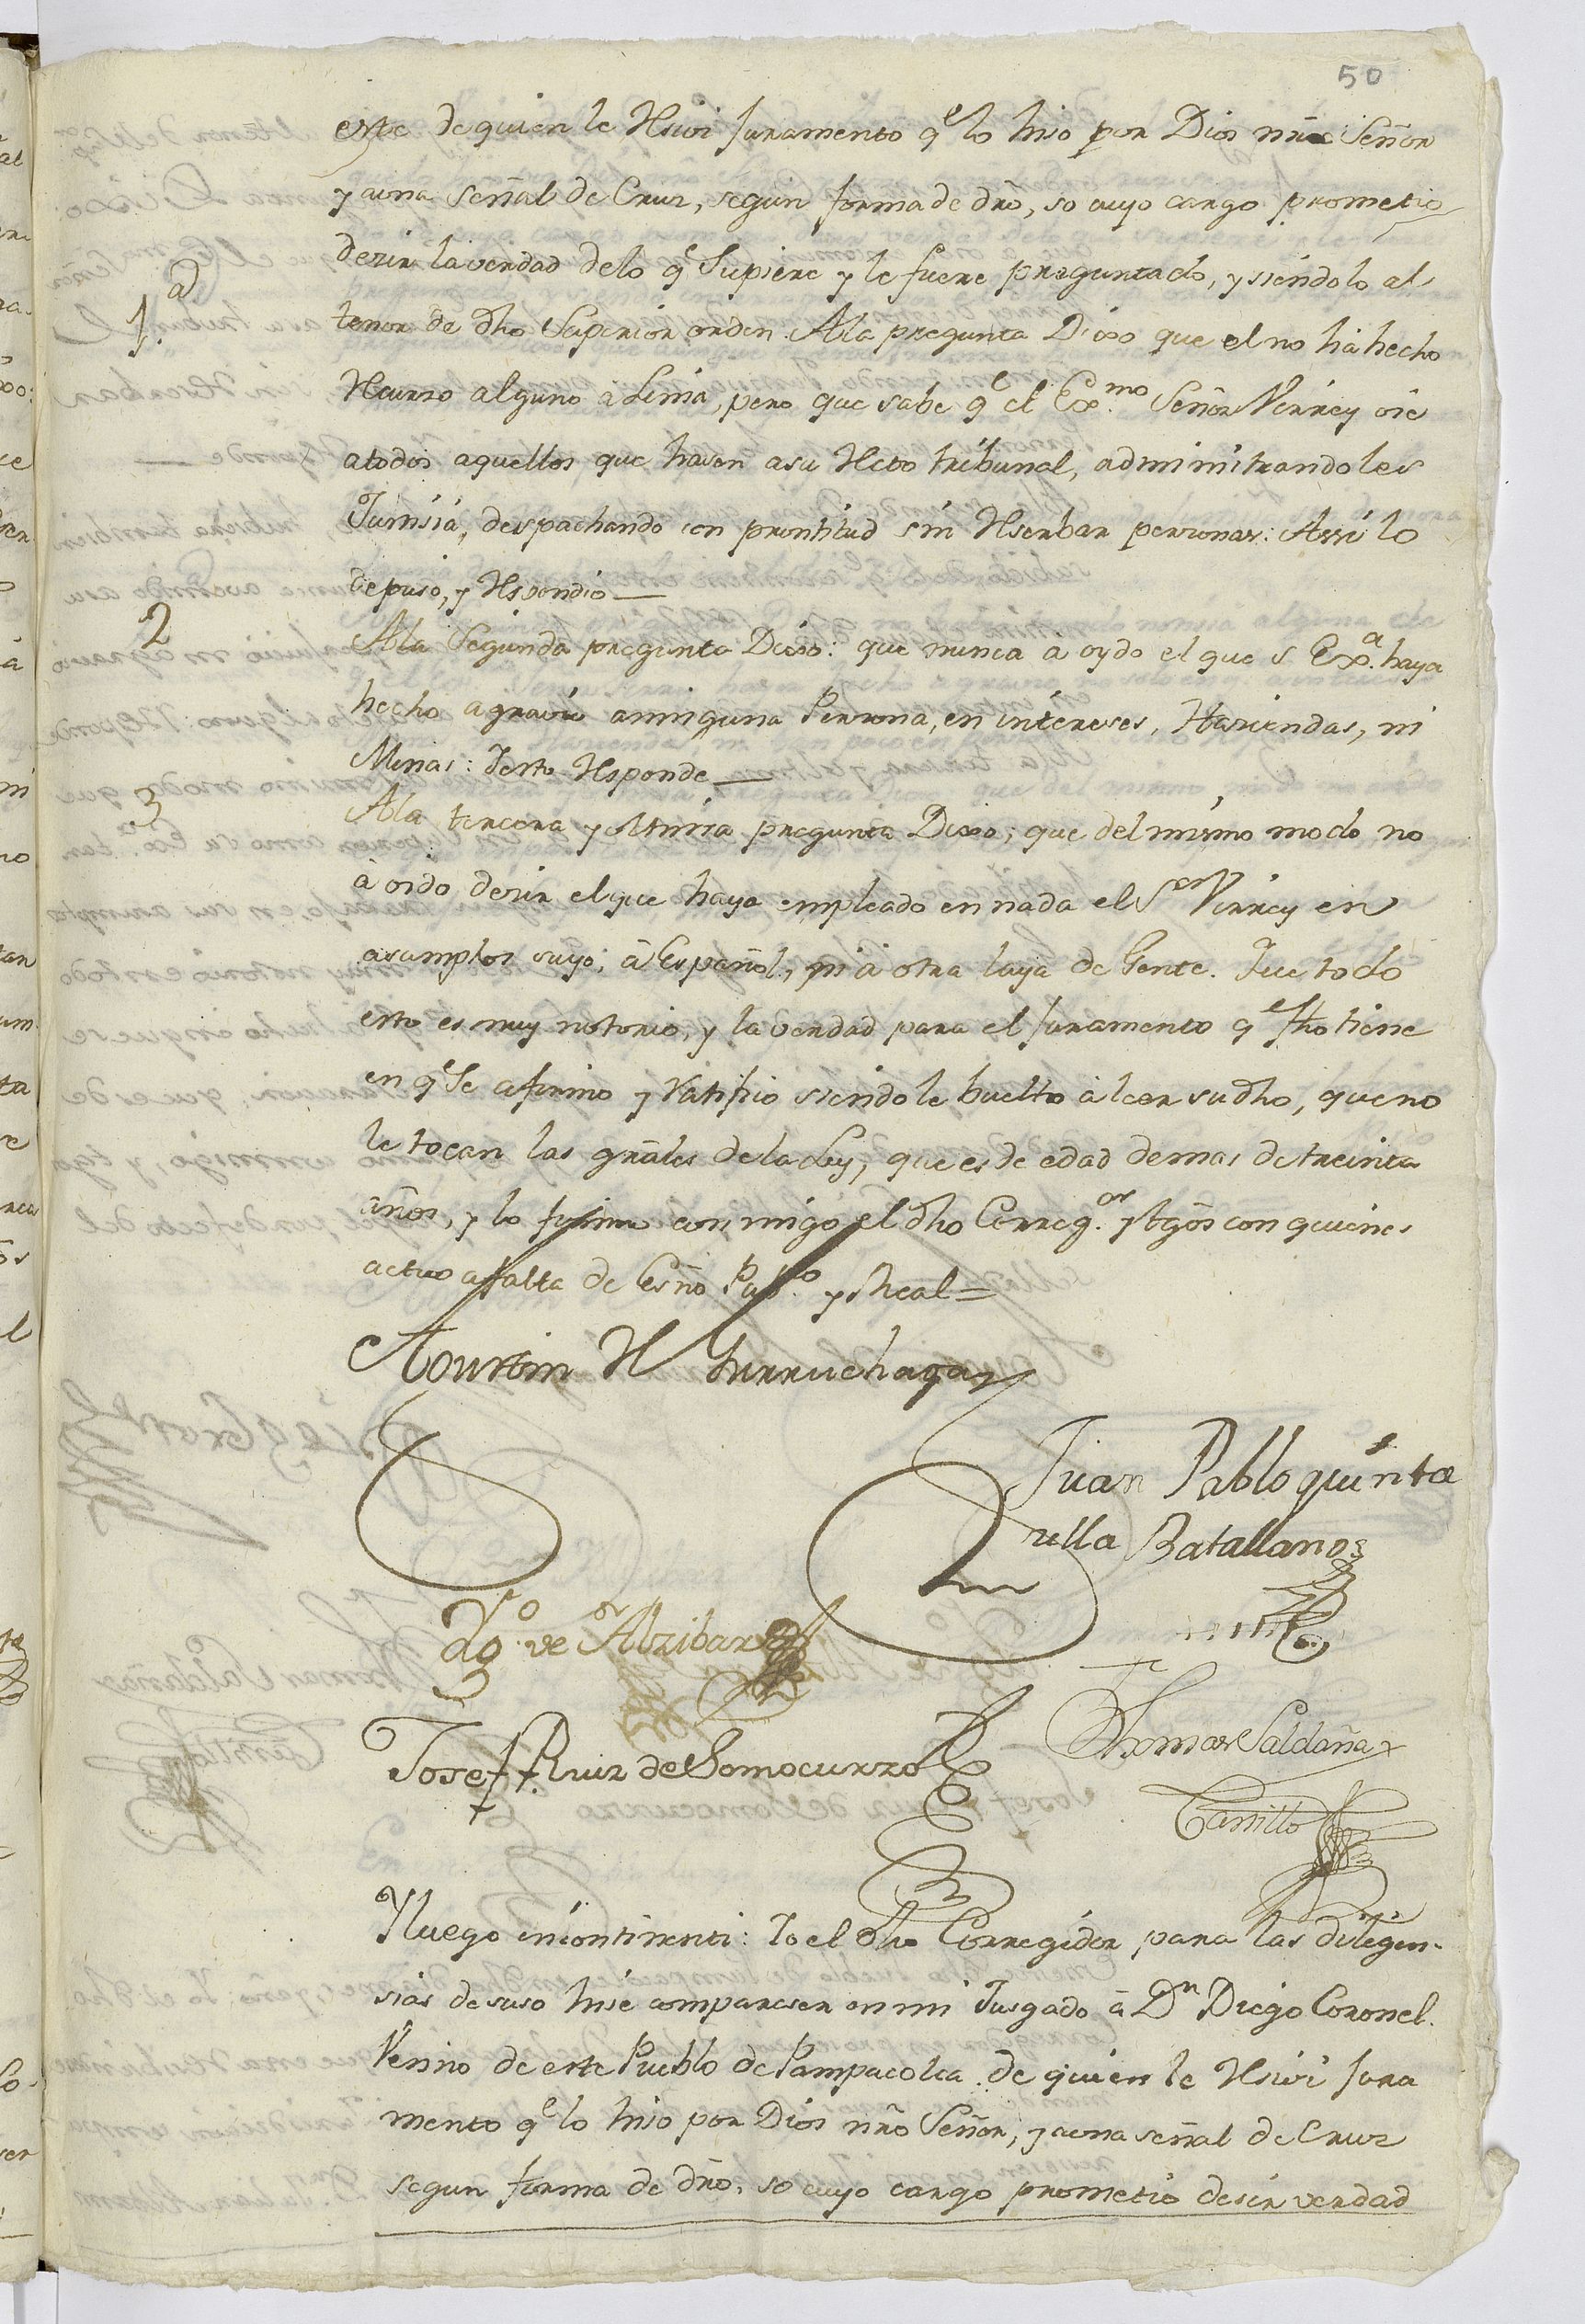 50
este de quien le Reciví Juramento qe lo hiso por Dios nro Señor
y auna Señal de Cruz, segun forma de dro, so cuyo cargo prometio
desir la verdad delo qe Supiere y le fuere preguntado, y siendolo al
1.a tenor de dho Superior orden. Ala pregunta Dixo que el no há hecho
Recurso alguno á Lima, pero que sabe qe el Exmo. Señor Virrey oie
atodos aquellos que hasen asu Recto tribunal, administrandoles
Justisia, despachando con prontitud sin Reserbar personas: Assi lo
depuso, y Respondió —
2 Ala Segunda pregunta Dixo: que nunca á oydo el que S. Exa. haya
hecho agravio aninguna Persona, en intereses, Hasiendas, ni
Minas: Y esto Responde —
3 Ala tercera y ultima pregunta Dixo; que del mismo modo no
à oido desir el que haya empleado en nada el Sor Virrey en
asumptos suyos á Español, ni à otra laya de Gente. Que todo
esto es muy notorio, y la verdad para el Juramento qe fho tiene
en qe se afirmo y Ratifico siendole buelto à leer su dho, que no
le tocan las grales de la Ley, que es de edad de mas de treinta
años, y lo firmo conmigo el dho Corregor. y tgos con quienes
actuo a falta de Esno Pubco. y Real =
Agustin R Gurruchaga
Juan Pablo quinta
nilla Batallanos
Dgo. de Alzibar
Josef Ruiz de Somocurzo
Thomas Saldaña
Carrillo
Y luego incontinenti: Yo el dho Corregidor para las diligen-
sias de suso hise compareser en mi Jusgado á Dn Diego Coronel.
Vesino de este Pueblo de Pampacolca de quien le Reciví Jura
mento qe lo hiso por Dios nro Señor, y auna señal de Cruz
segun forma de dro, so cuyo cargo prometió desir verdad